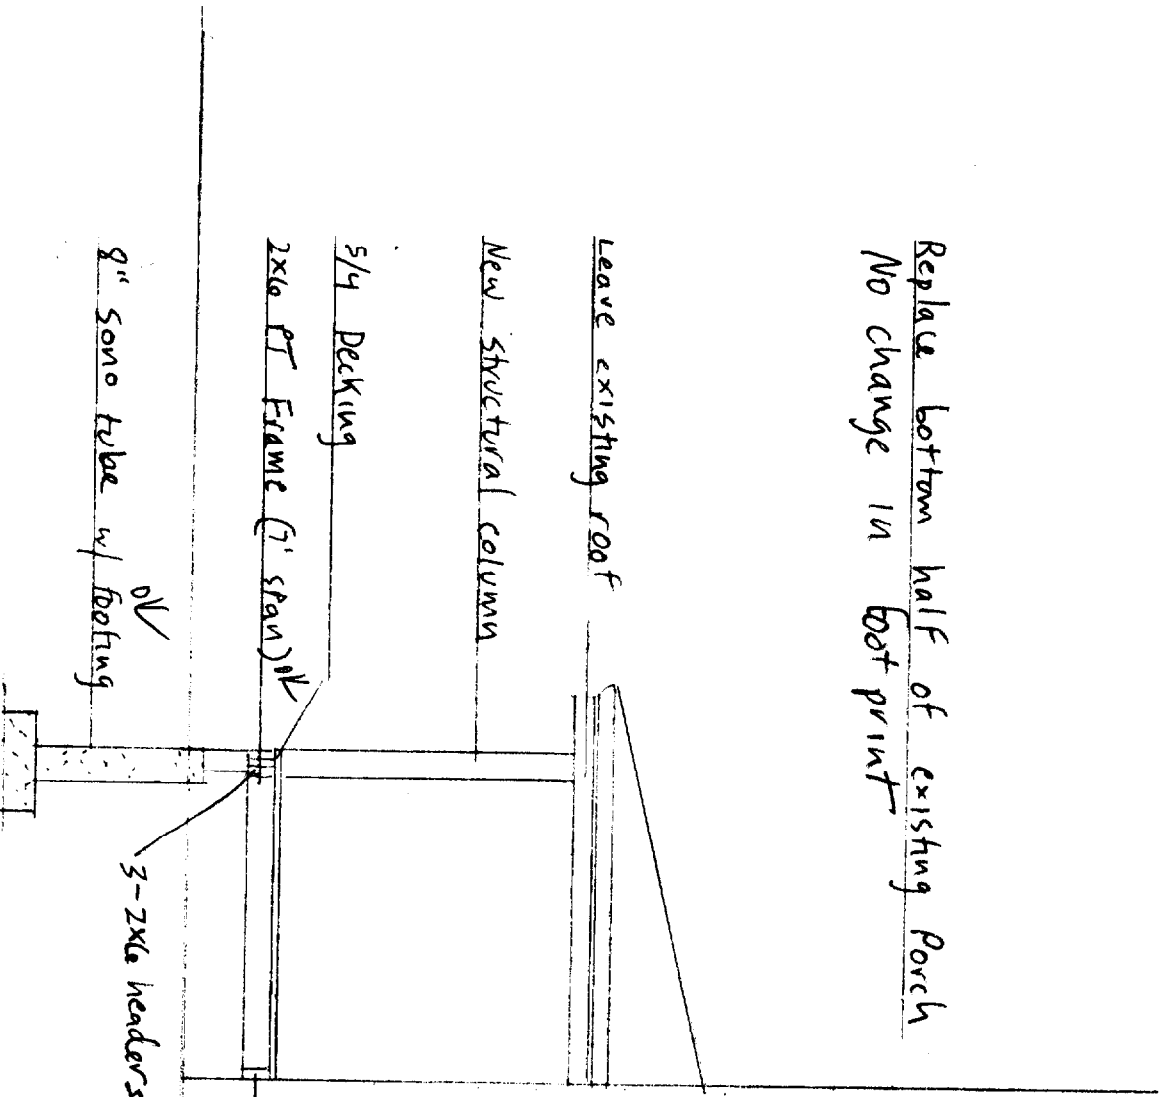 Replace bottom half of existing Porch
No change in foot print
Leave existing roof
New structural column
5/4 Decking
2x6 PT Frame (7' span) OK
8" sono tube w/ footing
OK
3-2x6 headers